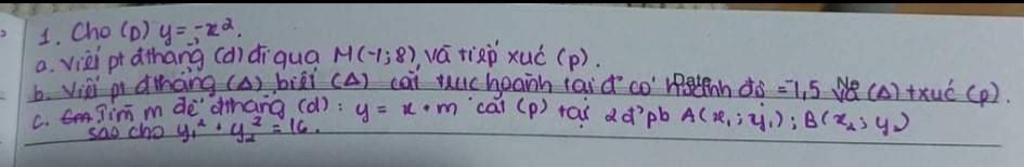 1. Cho (P) y = -x².
a. Viết pt đthẳng (d) đi qua M(-1;8) và tiếp xúc (p).
b. Viết pt đthẳng (Δ) biết (Δ) cắt trục hoành tại đ' có hoành độ = -1,5 và (Δ) txúc (p).
c. Tìm m để đthẳng (d): y = x + m cắt (p) tại 2đ' pb A(x₁; y₁); B(x₂; y₂)
sao cho y₁² + y₂² = 16.